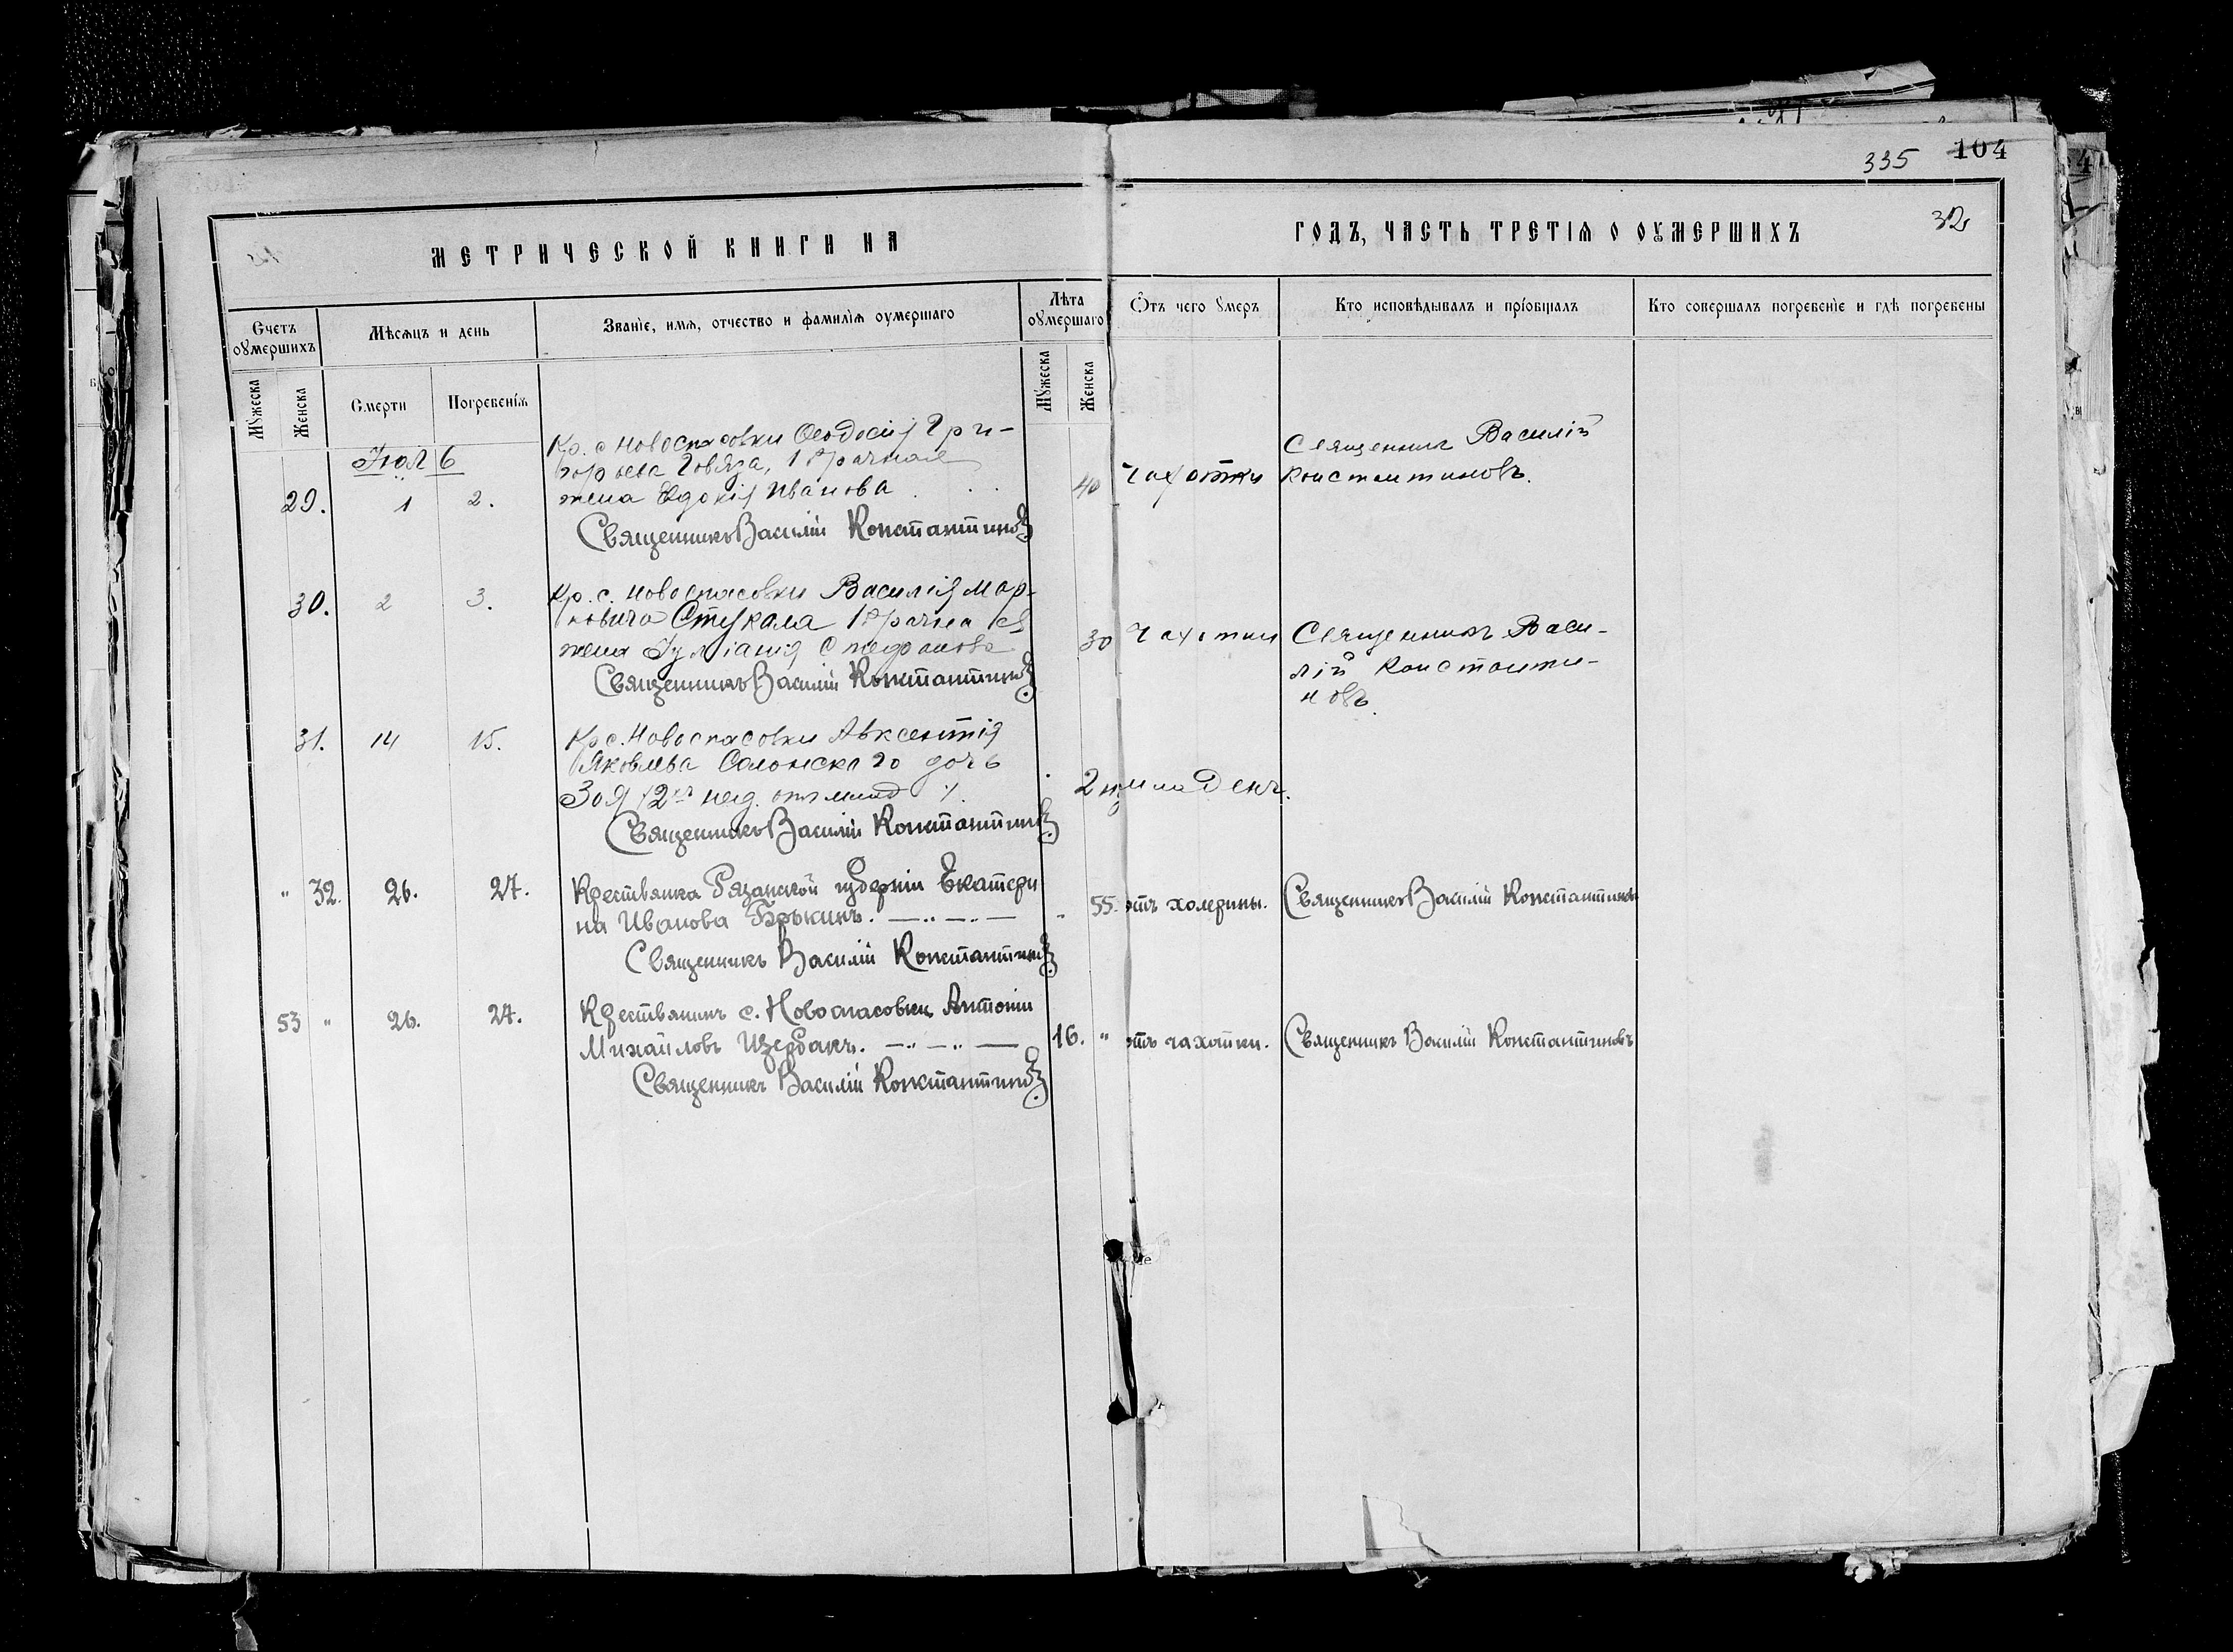 335 104
МЕТРИЧЕСКОЙ КНИГИ НА
ГОДЪ, ЧАСТЬ ТРЕТІѦ О ОУМЕРШИХЪ
32
Счетъ оумершихъ
Мѣсѧцъ и день
Званіе, имѧ, отчество и фамиліѧ оумершаго
Лѣта оумершаго
Отъ чего умеръ
Кто исповѣдывалъ и пріобщалъ
Кто совершалъ погребеніе и гдѣ погребены
Мужеска
Женска
Смерти
Погребеніѧ
Мужеска
Женска
Іюль
29. 1 2.
Кр. с Новоспасовки Ѳеодосія Гри-
горьева Говяза, 1 брачная
жена Евдокія Иванова
40 Чахотки
Священникъ Василій
Константиновъ.
Священникъ Василій Константиновъ
30. 2 3.
Кр. с. Новоспасовки Василія Мар-
ковича Стукала 1 брачная
жена Іуліанія
30 Чахотки
Священникъ Васи-
лій Константи-
новъ.
Священникъ Василій Константиновъ
31. 14 15.
Кр с. Новоспасовки Авксентія
Яковлева Солонскаго дочь
Зоя 2хъ нед. отъ млад
2 н младенч.
Священникъ Василій Константиновъ
" 32. 26. 27.
Крестьянка Рязанской губерніи Екатери
на Иванова Брыкинъ.
55. отъ холерины. Священникъ Василій Константиновъ
Священникъ Василій Константиновъ
53 " 26. 27.
Крестьянинъ с. Новоспасовки Антоній
Михайловъ Щербакъ.
16. " отъ чахотки. Священникъ Василій Константиновъ
Священникъ Василій Константиновъ